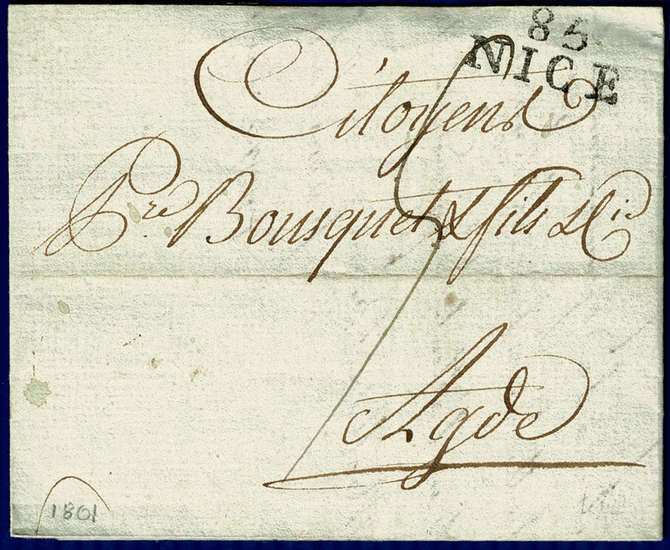 85
NICE
Citoyens
Pre Bousquet & fils & Cie
Agde
1801